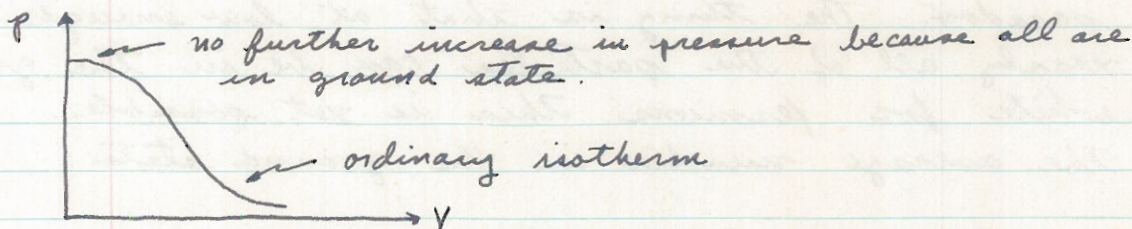 p
no further increase in pressure because all are
in ground state.
ordinary isotherm
V